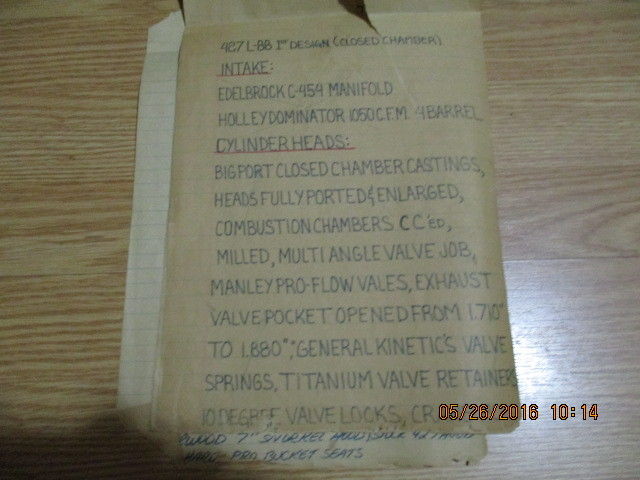 427 L-88 1ST DESIGN (CLOSED CHAMBER)
INTAKE:
EDELBROCK C-454 MANIFOLD
HOLLEY DOMINATOR 1050 C.F.M. 4 BARREL
CYLINDER HEADS:
BIG PORT CLOSED CHAMBER CASTINGS,
HEADS FULLY PORTED & ENLARGED,
COMBUSTION CHAMBERS CC'ED,
MILLED, MULTI ANGLE VALVE JOB,
MANLEY PRO-FLOW VALES, EXHAUST
VALVE POCKET OPENED FROM 1.710"
TO 1.880", GENERAL KINETIC'S VALVE
SPRINGS, TITANIUM VALVE RETAINERS
10 DEGREE VALVE LOCKS, CR
05/26/2016 10:14
7" SNORKEL HOOD
PRO BUCKET SEATS